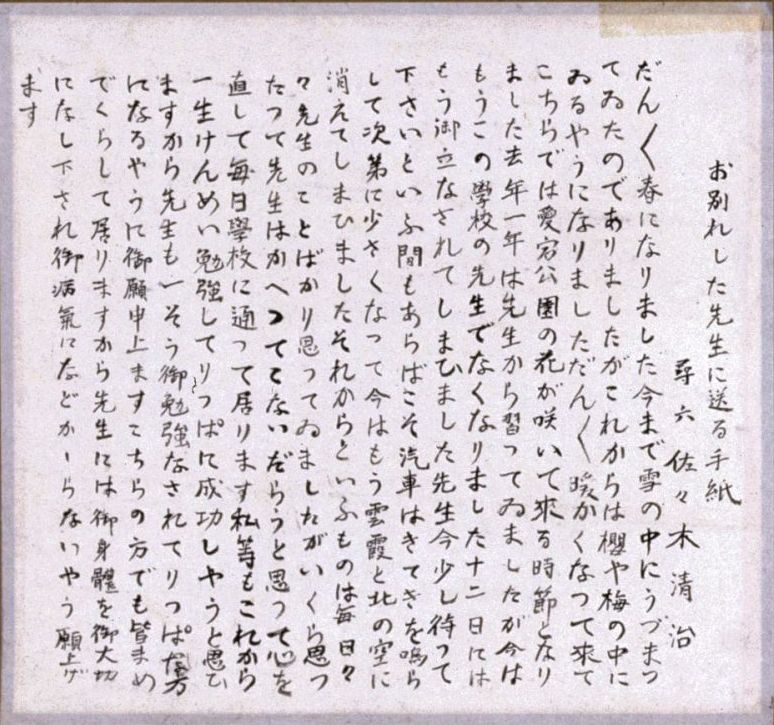 お別れした先生に送る手紙
尋六 佐々木清治
だん〳〵春になりました今まで雪の中にうづまつ
てゐたのでありましたがこれからは櫻や梅の中に
ゐるやうになりましただん〳〵暖かくなつて来て
こちらでは愛宕公園の花が咲いて來る時節となり
ました去年一年は先生から習つてゐましたが今は
もうこの學校の先生でなくなりました十二日には
もう御立なされてしまひました先生今少し待つて
下さいといふ間もあらばこそ汽車はきてきを鳴ら
して次第に少さくなつて今はもう雲霞と北の空に
消えてしまひましたそれからといふものは毎日々
々先生のことばかり思つてゐましたがいくら思つ
たつて先生はかへつてこないだらうと思つて心を
直して毎日學校に通つて居ります私等もこれから
一生けんめい勉強してりつぱに成功しやうと思ひ
ますから先生も一そう御勉強なされてりつぱな
になるやうに御願申上ますこちらの方でも皆まめ
でくらして居りますから先生には御身體を御大切
になし下され御病氣になどかーらないやう願上げ
ます